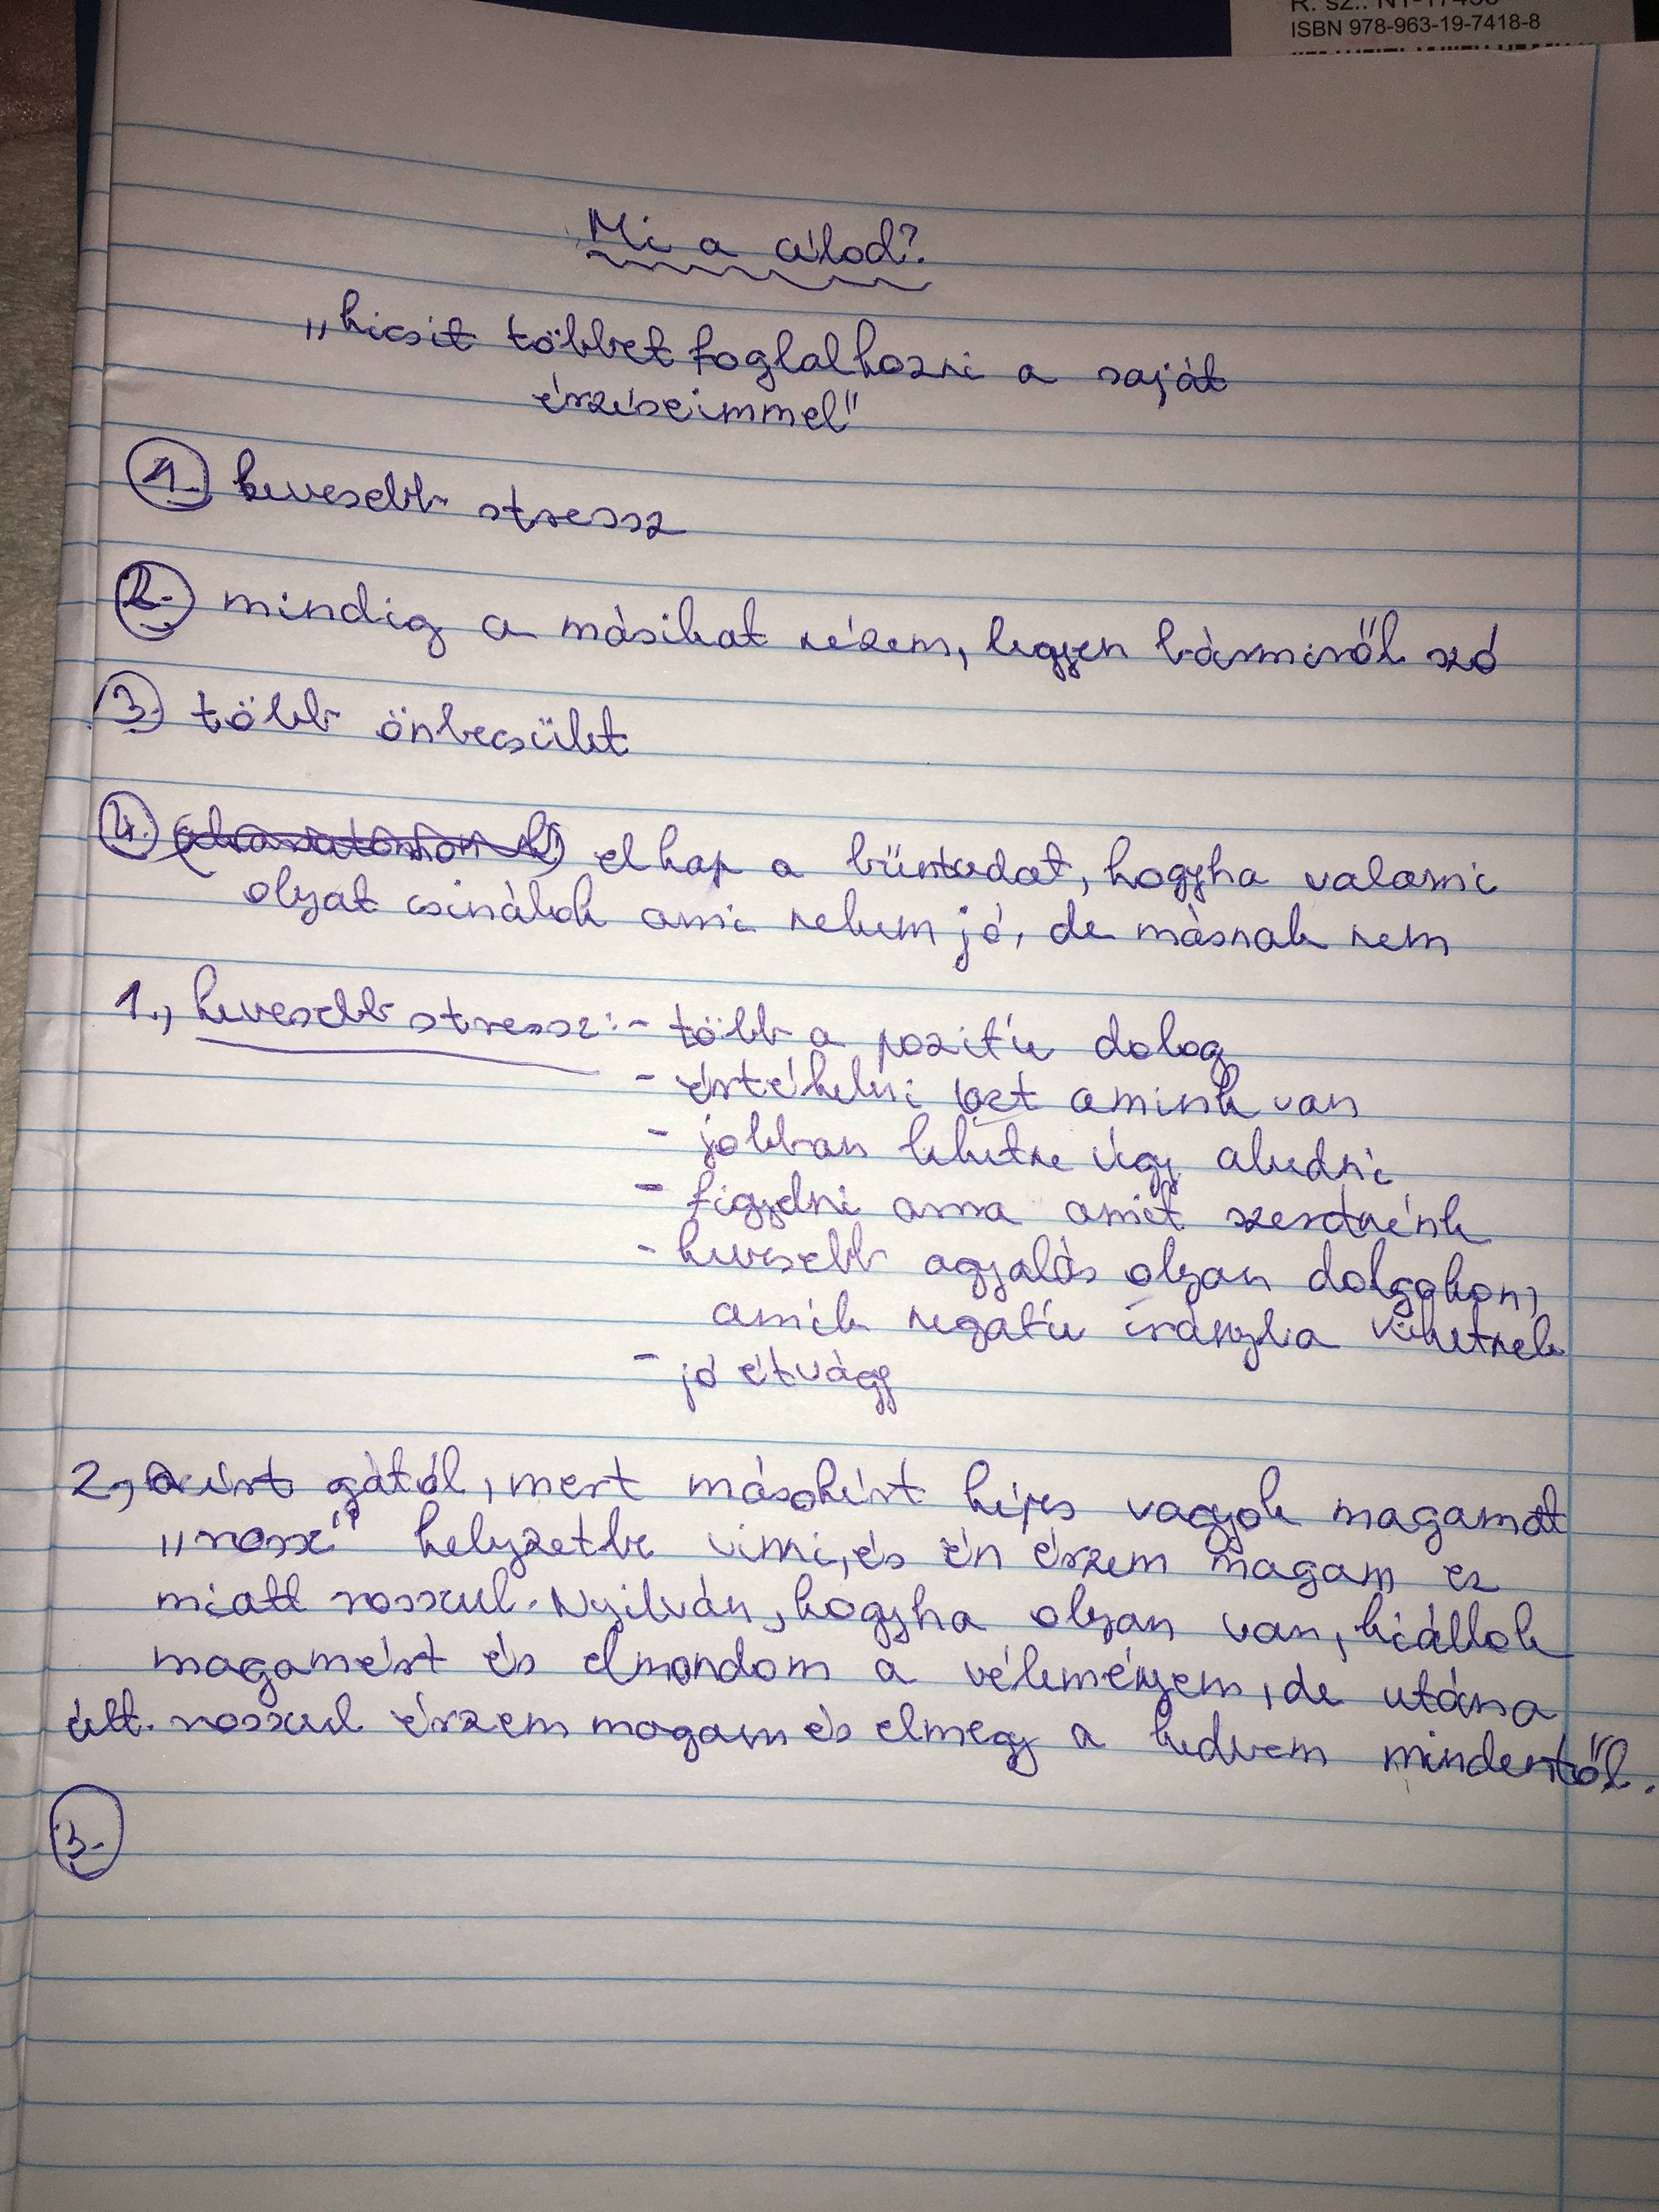 R. sz.: NT-17
ISBN 978-963-19-7418-8
Mi a célod?
„kicsit többet foglalkozni a saját
érzéseimmel"
1. kevesebb stressz
2. mindig a másikat nézem, legyen bármiről szó
3. több önbecsület
4. elkap a bűntudat, hogyha valami
olyat csinálok ami nekem jó, de másnak nem
1., kevesebb stressz: - több a pozitív dolog
- értékelni amink van
- jobban lehetne így aludni
- figyelni arra amit szeretnénk
- kevesebb agyalás olyan dolgokon,
amik negatív irányba vihetnek
- jó étvágy
2., azért gától, mert másokért képes vagyok magamat
„rossz" helyzetbe vinni, és én érzem magam ez
miatt rosszul. Nyilván, hogyha olyan van, kiállok
magamért és elmondom a véleményem, de utána
ált. rosszul érzem magam és elmegy a kedvem mindentől.
3.